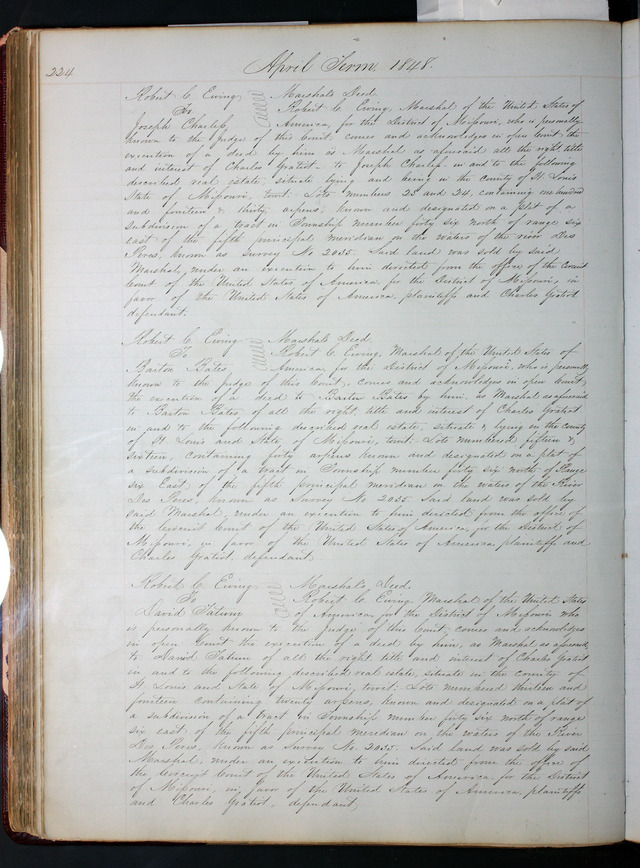 224
April Term. 1848.
Robert C. Ewing Marshals Deed.
To Robert C. Ewing, Marshal of the United States of
Joseph Charless America, for the District of Missouri, who is personally
known to the Judge of this Court, comes and acknowledges in open Court, the
execution of a deed by him as Marshal as aforesaid all the right title
and interest of Charles Gratiot to Joseph Charless in and to the following
described real estate, situate lying and being in the county of St. Louis
State of Missouri, towit: Lots numbers 23 and 24, containing one hundred
and fourteen & thirty arpens, known and designated on a plat of a
subdivision of a tract in Township number forty six north of range six
east of the fifth principal meridian on the waters of the river Des
Peres, known as Survey No 2035. Said land was sold by said
Marshal, under an execution to him directed from the office of the Circuit
Court of the United States of America for the District of Missouri, in
favor of the United States of America plaintiffs and Charles Gratiot
defendant.
Robert C. Ewing Marshals Deed.
To Robert C. Ewing, Marshal of the United States of
Barton Bates America, for the District of Missouri, who is personally
known to the judge of this Court, comes and acknowledges in open Court
the execution of a deed to Barton Bates by him, as Marshal as aforesaid
to Barton Bates of all the right, title and interest of Charles Gratiot
in and to the following described real estate, situate & lying in the county
of St. Louis and State of Missouri, towit: Lots numbered fifteen &
sixteen, containing forty arpens known and designated on a plat of
a subdivision of a tract in Township number forty six north of Range
six East of the fifth principal meridian on the waters of the River
Des Peres, known as Survey No 2035. Said land was sold by
said Marshal, under an execution to him directed from the office of
the Circuit Court of the United States of America, for the District of
Missouri, in favor of the United States of America plaintiffs and
Charles Gratiot defendant.
Robert C. Ewing Marshals Deed.
To Robert C. Ewing Marshal of the United States
David Tatum of America, for the District of Missouri who
is personally known to the judge of this Court, comes and acknowledges
in open Court the execution of a deed by him, as Marshal as aforesaid,
to David Tatum of all the right, title and interest of Charles Gratiot
in and to the following described real estate, situate in the county of
St. Louis and State of Missouri, towit: Lots numbered thirteen and
fourteen containing twenty arpens, known and designated on a plat of
a subdivision of a tract in Township number forty six north of range
six east of the fifth principal meridian on the waters of the River
Des Peres, known as Survey No. 2035. Said land was sold by said
Marshal, under an execution to him directed from the office of
the Circuit Court of the United States of America for the District
of Missouri, in favor of the United States of America plaintiffs
and Charles Gratiot, defendant,